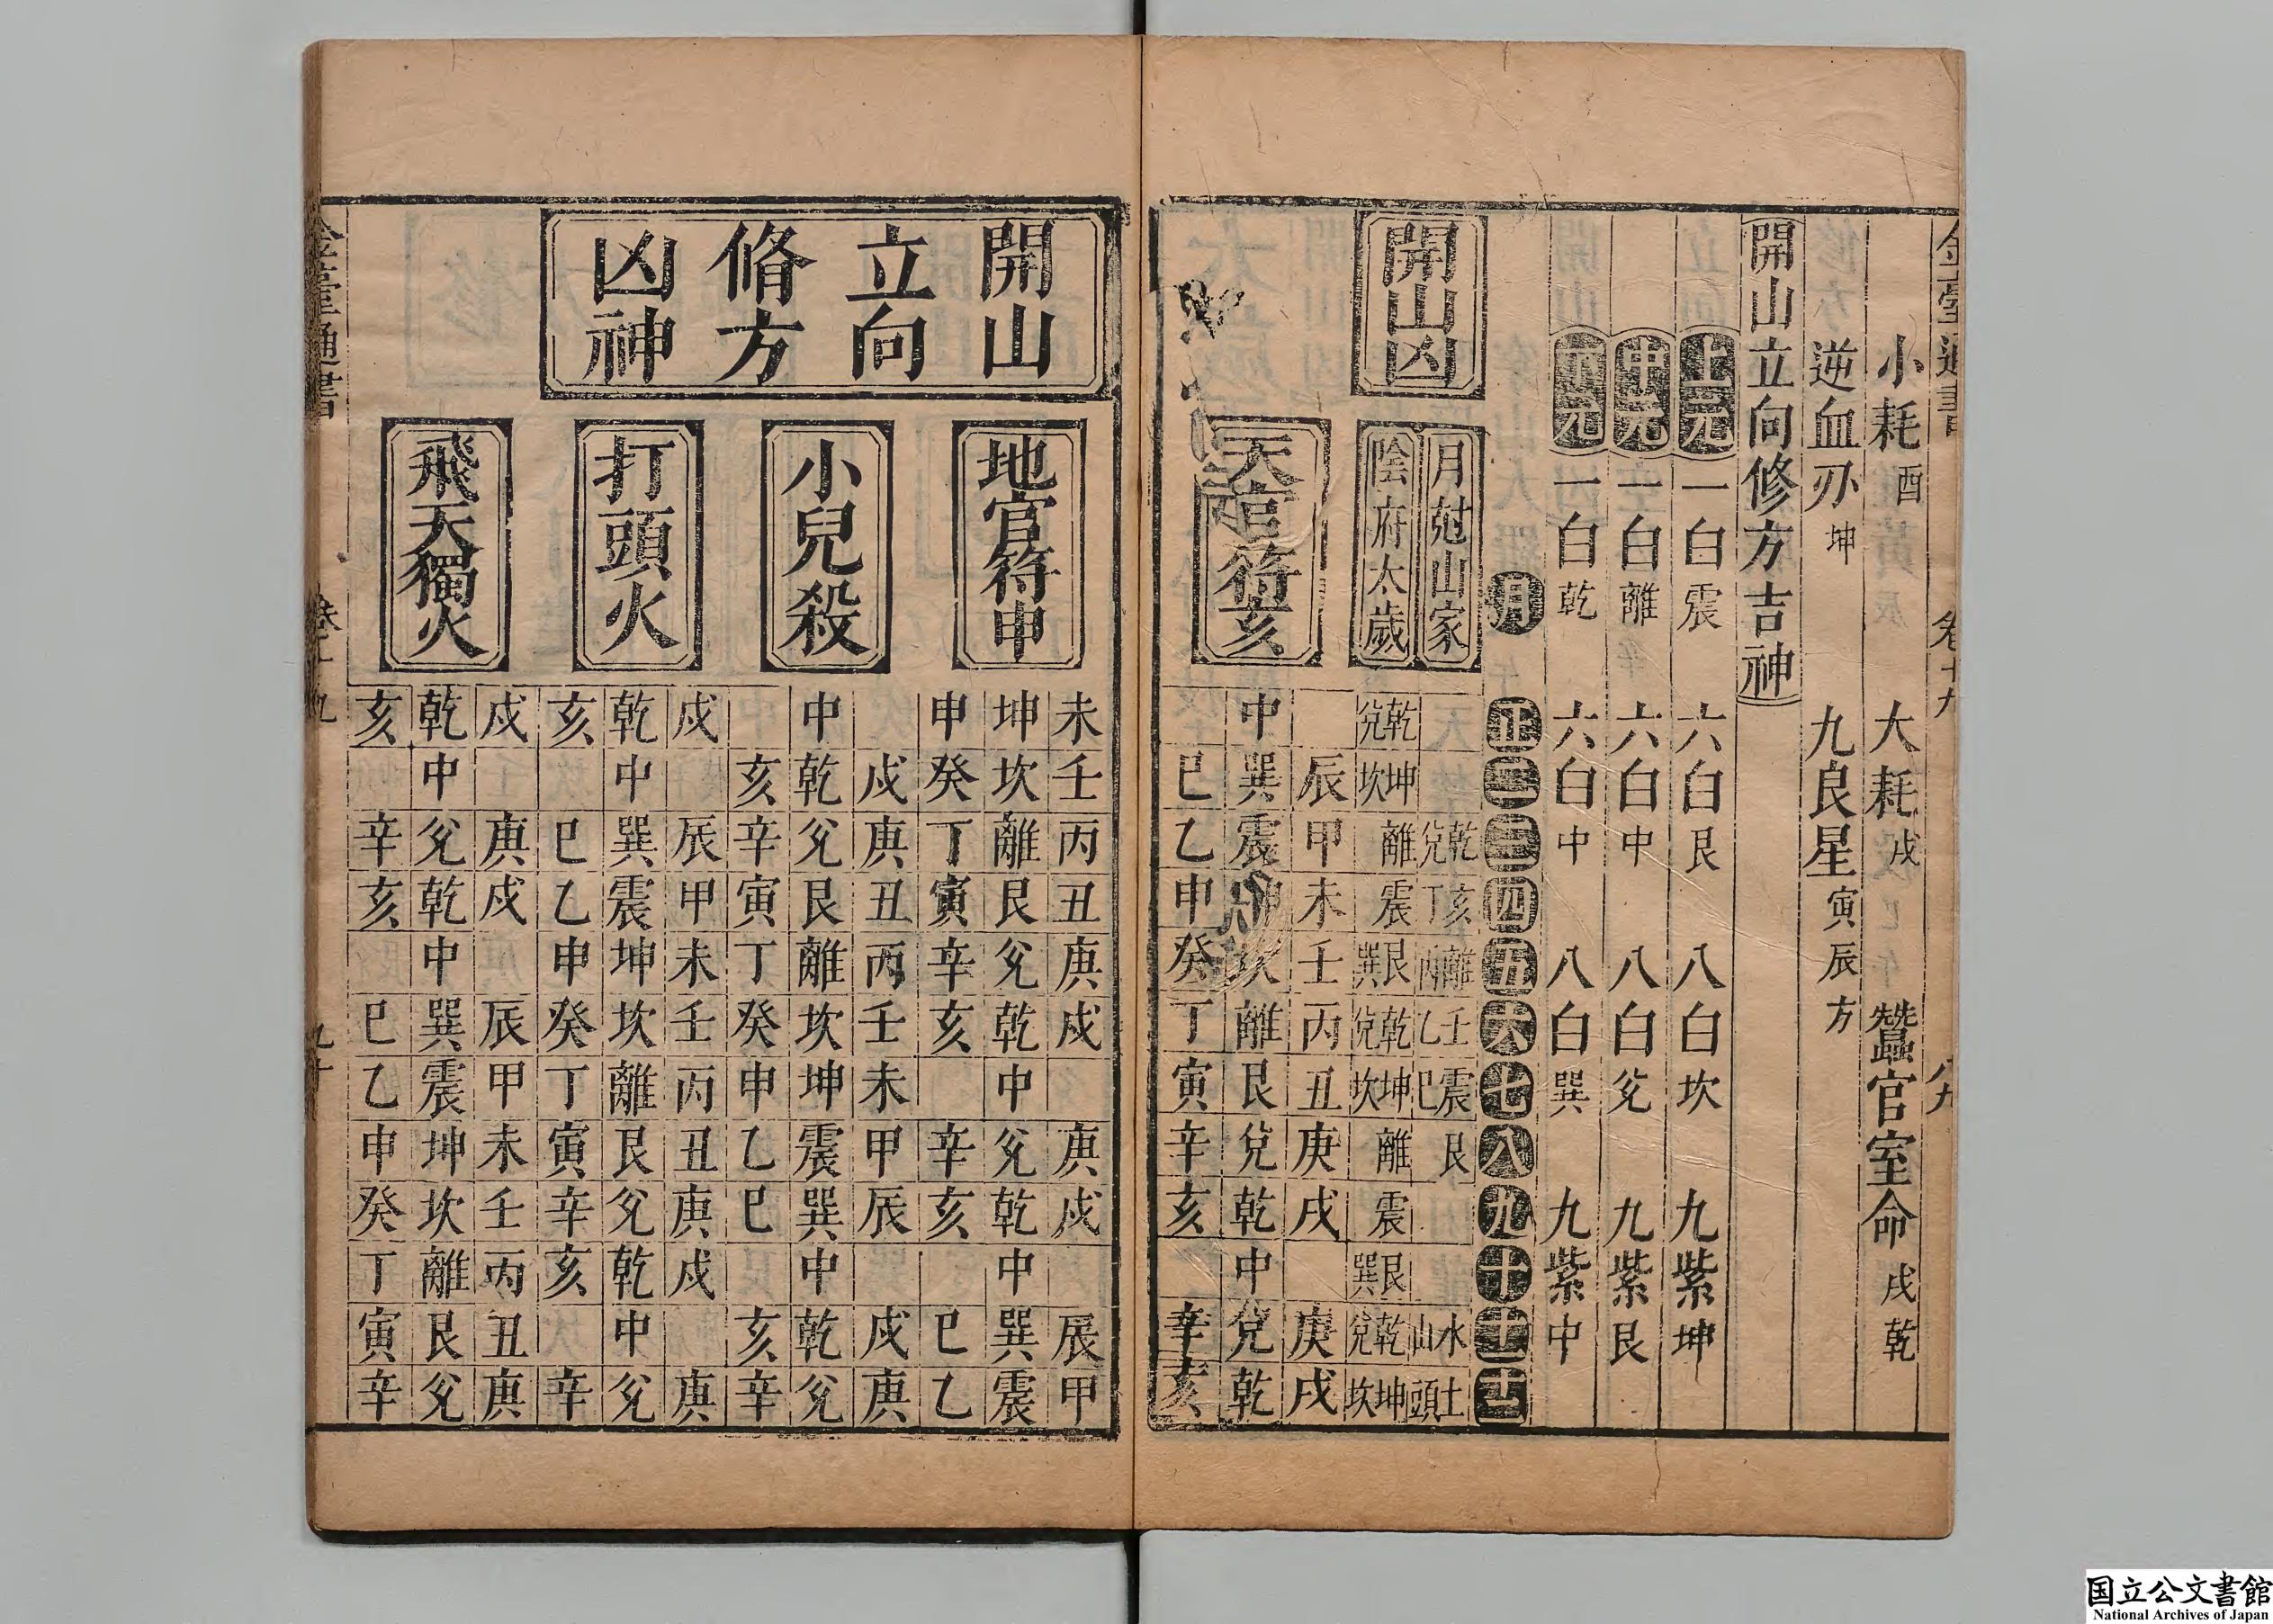 小耗酉 大耗戌 蠶官室命戌乾
逆血刃坤 九良星寅辰方
開山立向修方吉神
上元 一白震 六白艮 八白坎 九紫坤
中元 一白離 六白中 八白兊 九紫艮
下元 一白乾 六白中 八白巽 九紫中
月 正 二 三 四 五 六 七 八 九 十 十一 十二
開山凶
月尅山家 乾兊 亥丁 離丙 壬乙 震巳 艮 水山 土頭
陰府太歲 乾兊 坤坎 離 震 艮巽 乾兊 坤坎 離 震 艮巽 乾兊 坤坎
天官符亥
辰 甲 未 壬 丙 丑 庚 戌 庚 戌
中 巽 震 坎 離 艮 兊 乾 中 兊 乾
巳 乙 申 癸 丁 寅 辛 亥 辛 亥
開山
立向
脩方
凶神
地官符申
未 壬 丙 丑 庚 戌 庚 戌 辰 甲
坤 坎 離 艮 兊 乾 中 兊 乾 中 巽 震
申 癸 丁 寅 辛 亥 辛 亥 巳 乙
小兒殺
戌 庚 丑 丙 壬 未 甲 辰 戌 庚
中 乾 兊 艮 離 坎 坤 震 巽 中 乾 兊
亥 辛 寅 丁 癸 申 乙 巳 亥 辛
打頭火
戌 辰 甲 未 壬 丙 丑 庚 戌 庚
乾 中 巽 震 坤 坎 離 艮 兊 乾 中 兊
亥 巳 乙 申 癸 丁 寅 辛 亥 辛
飛天獨火
戌 庚 戌 辰 甲 未 壬 丙 丑 庚
乾 中 兊 乾 中 巽 震 坤 坎 離 艮 兊
亥 辛 亥 巳 乙 申 癸 丁 寅 辛
国立公文書館
National Archives of Japan